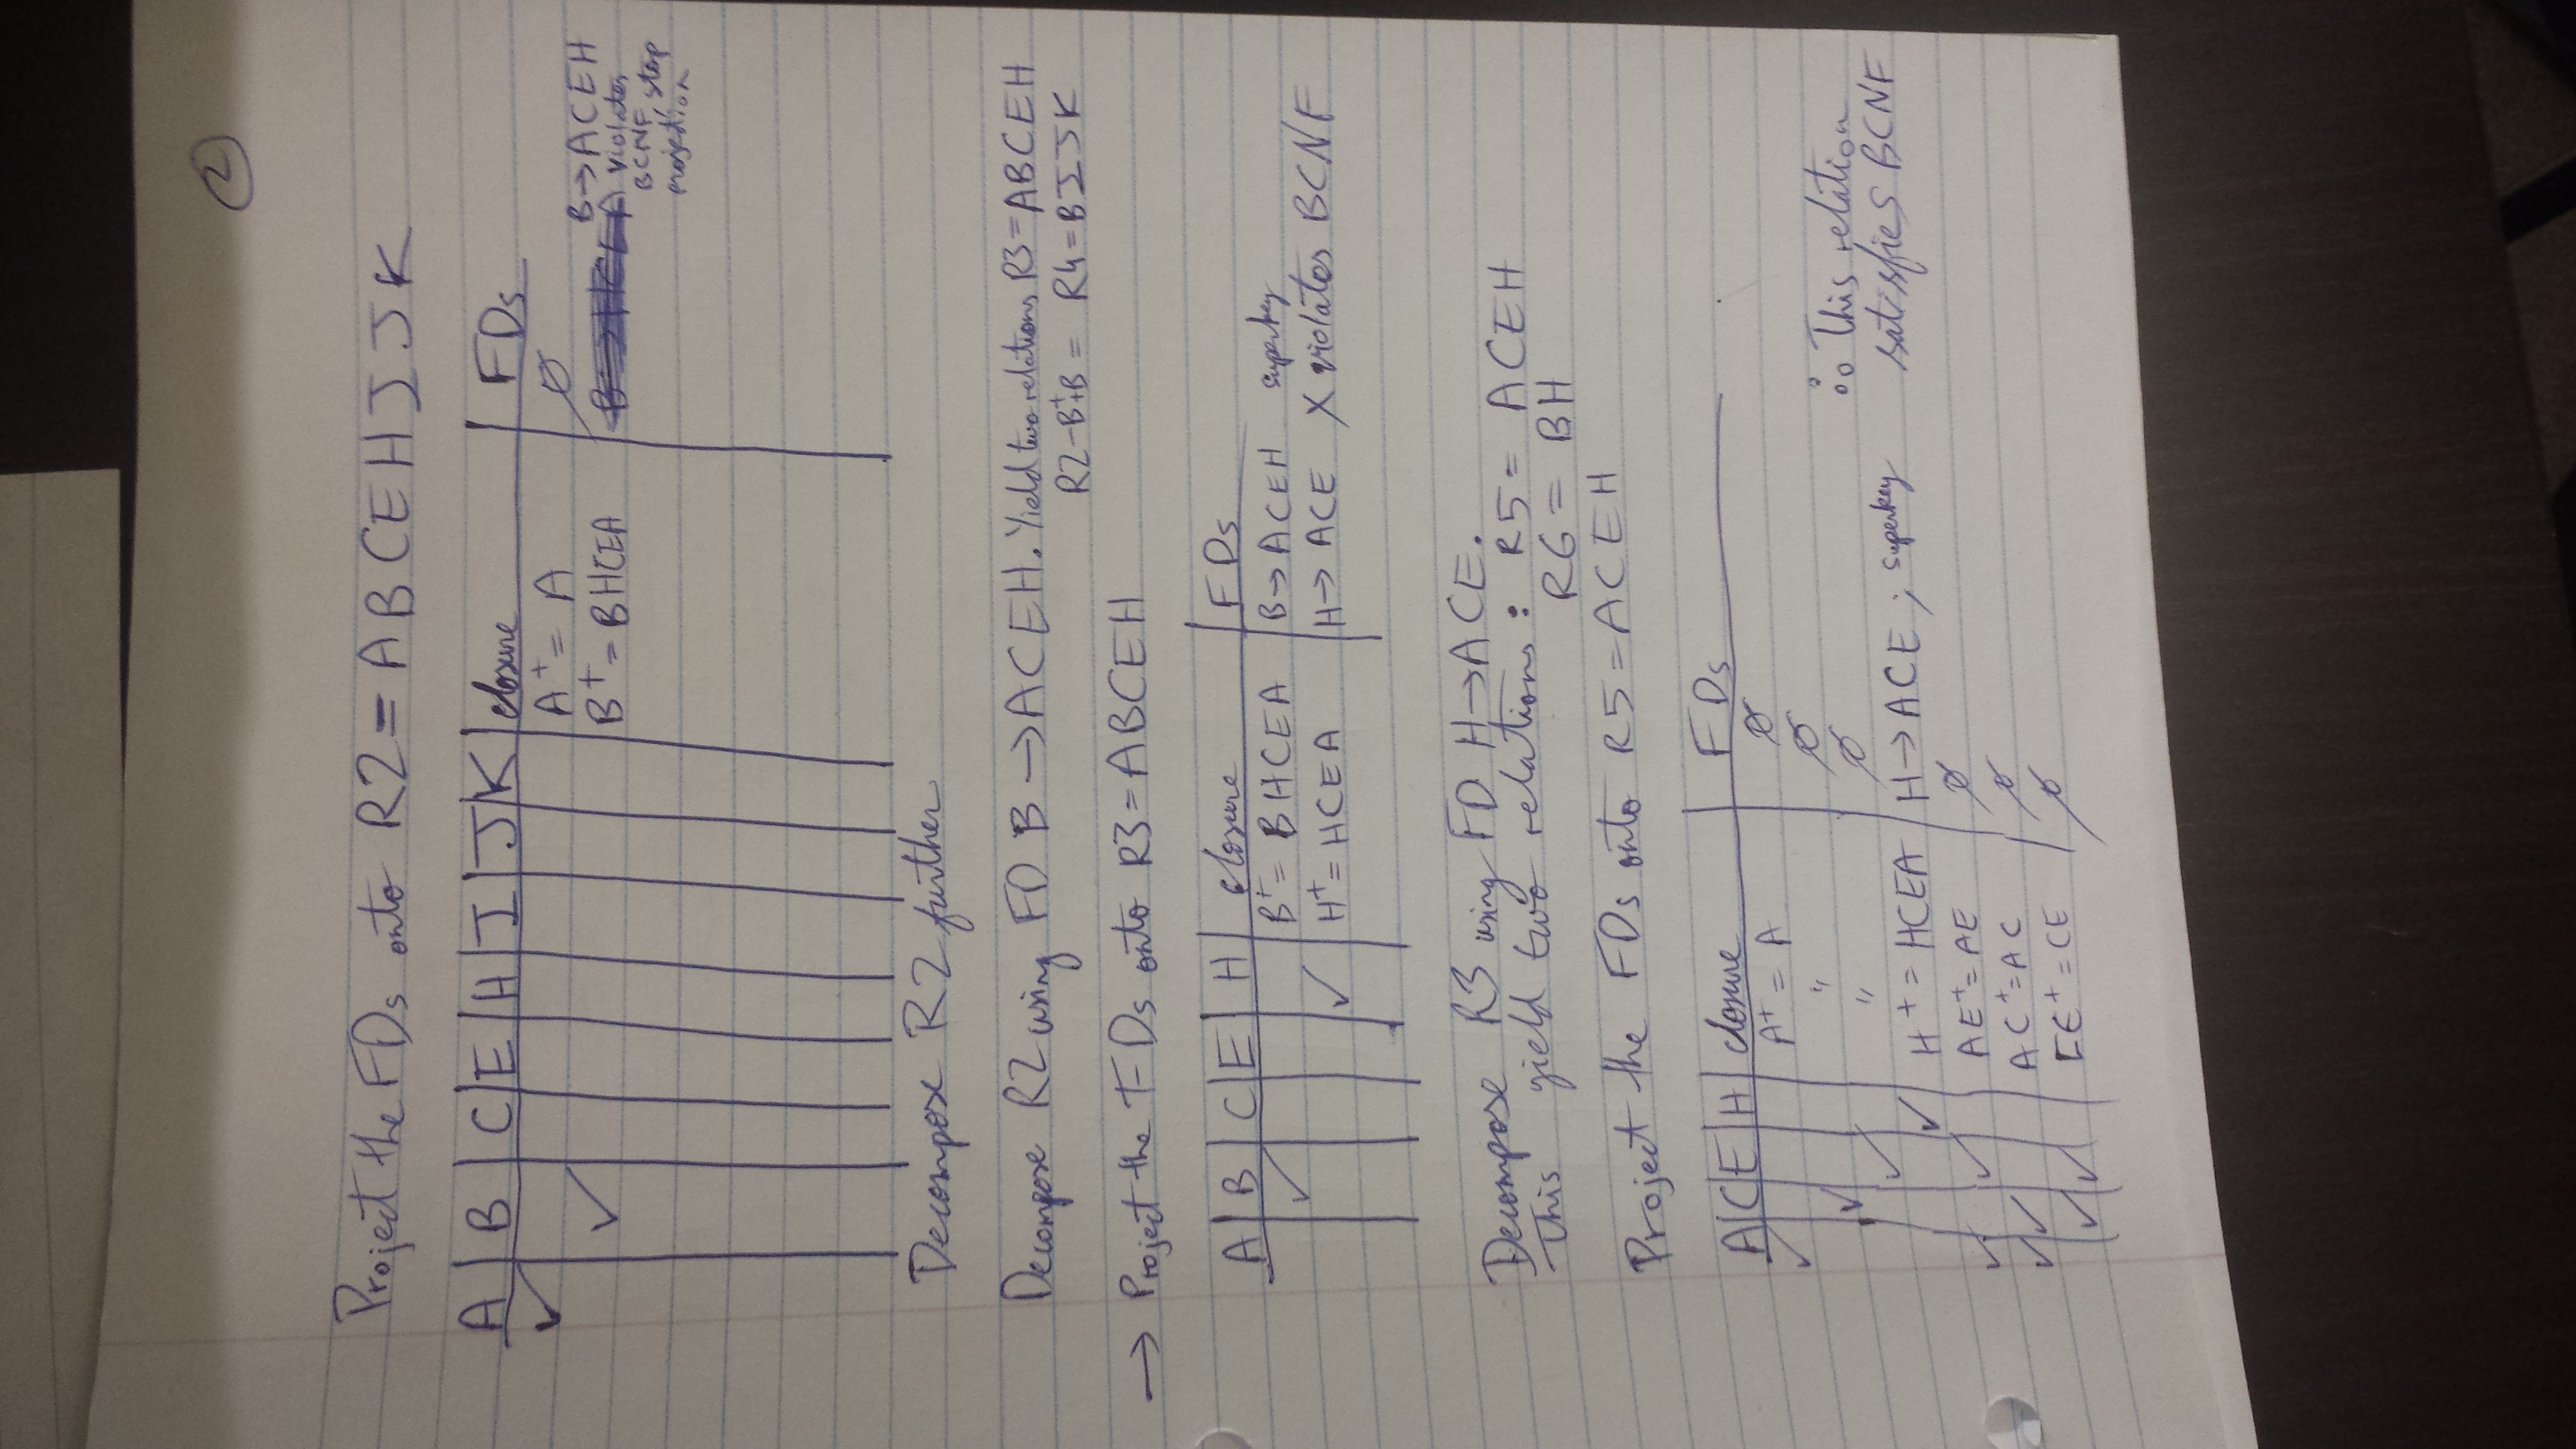 2
Project the FDs onto R2 = ABCEHIJK
A | B | C | E | H | I | J | K | closure | FDs
✓ A⁺ = A ∅
✓ B⁺ = BHCEA B→ACEH
violates
BCNF, stop
projection
Decompose R2 further
Decompose R2 using FD B→ACEH. Yield two relations R3 = ABCEH
R2-B⁺+B = R4 = BIJK
→ Project the FDs onto R3 = ABCEH
A | B | C | E | H | closure | FDs
✓ B⁺ = BHCEA B→ACEH superkey
✓ H⁺ = HCEA H→ACE X violates BCNF
Decompose R3 using FD H→ACE.
This yield two relations: R5 = ACEH
R6 = BH
Project the FDs onto R5 = ACEH
A | C | E | H | closure | FDs
✓ A⁺ = A ∅
✓ " ∅
✓ " ∅
✓ H⁺ = HCEA H→ACE ; superkey
✓ ✓ AE⁺ = AE ∅
✓ ✓ AC⁺ = AC ∅
✓ ✓ CE⁺ = CE ∅
∴ This relation
satisfies BCNF